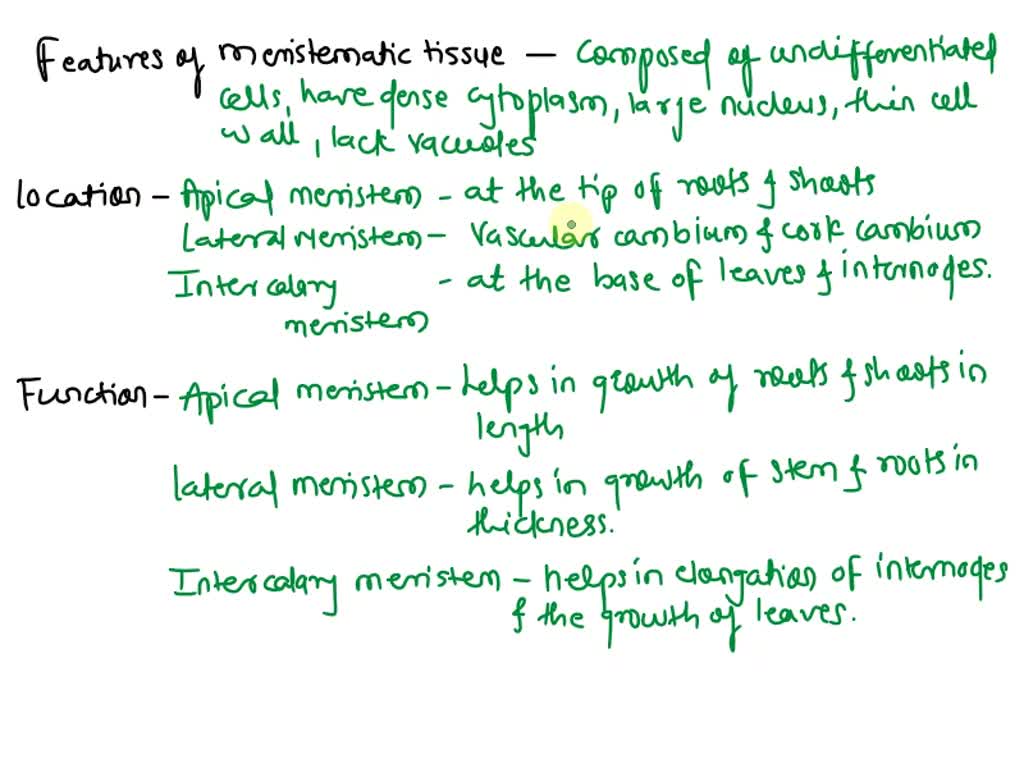 Features of meristematic tissue – Composed of undifferentiated
cells, have dense cytoplasm, large nucleus, thin cell
wall, lack vacuoles
Location – Apical meristem – at the tip of roots & shoots
Lateral Meristem – Vascular cambium & cork cambium
Intercalary – at the base of leaves & internodes.
meristem
Function – Apical meristem – helps in growth of roots & shoots in
length
lateral meristem – helps in growth of stem & roots in
thickness.
Intercalary meristem – helps in elongation of internodes
& the growth of leaves.